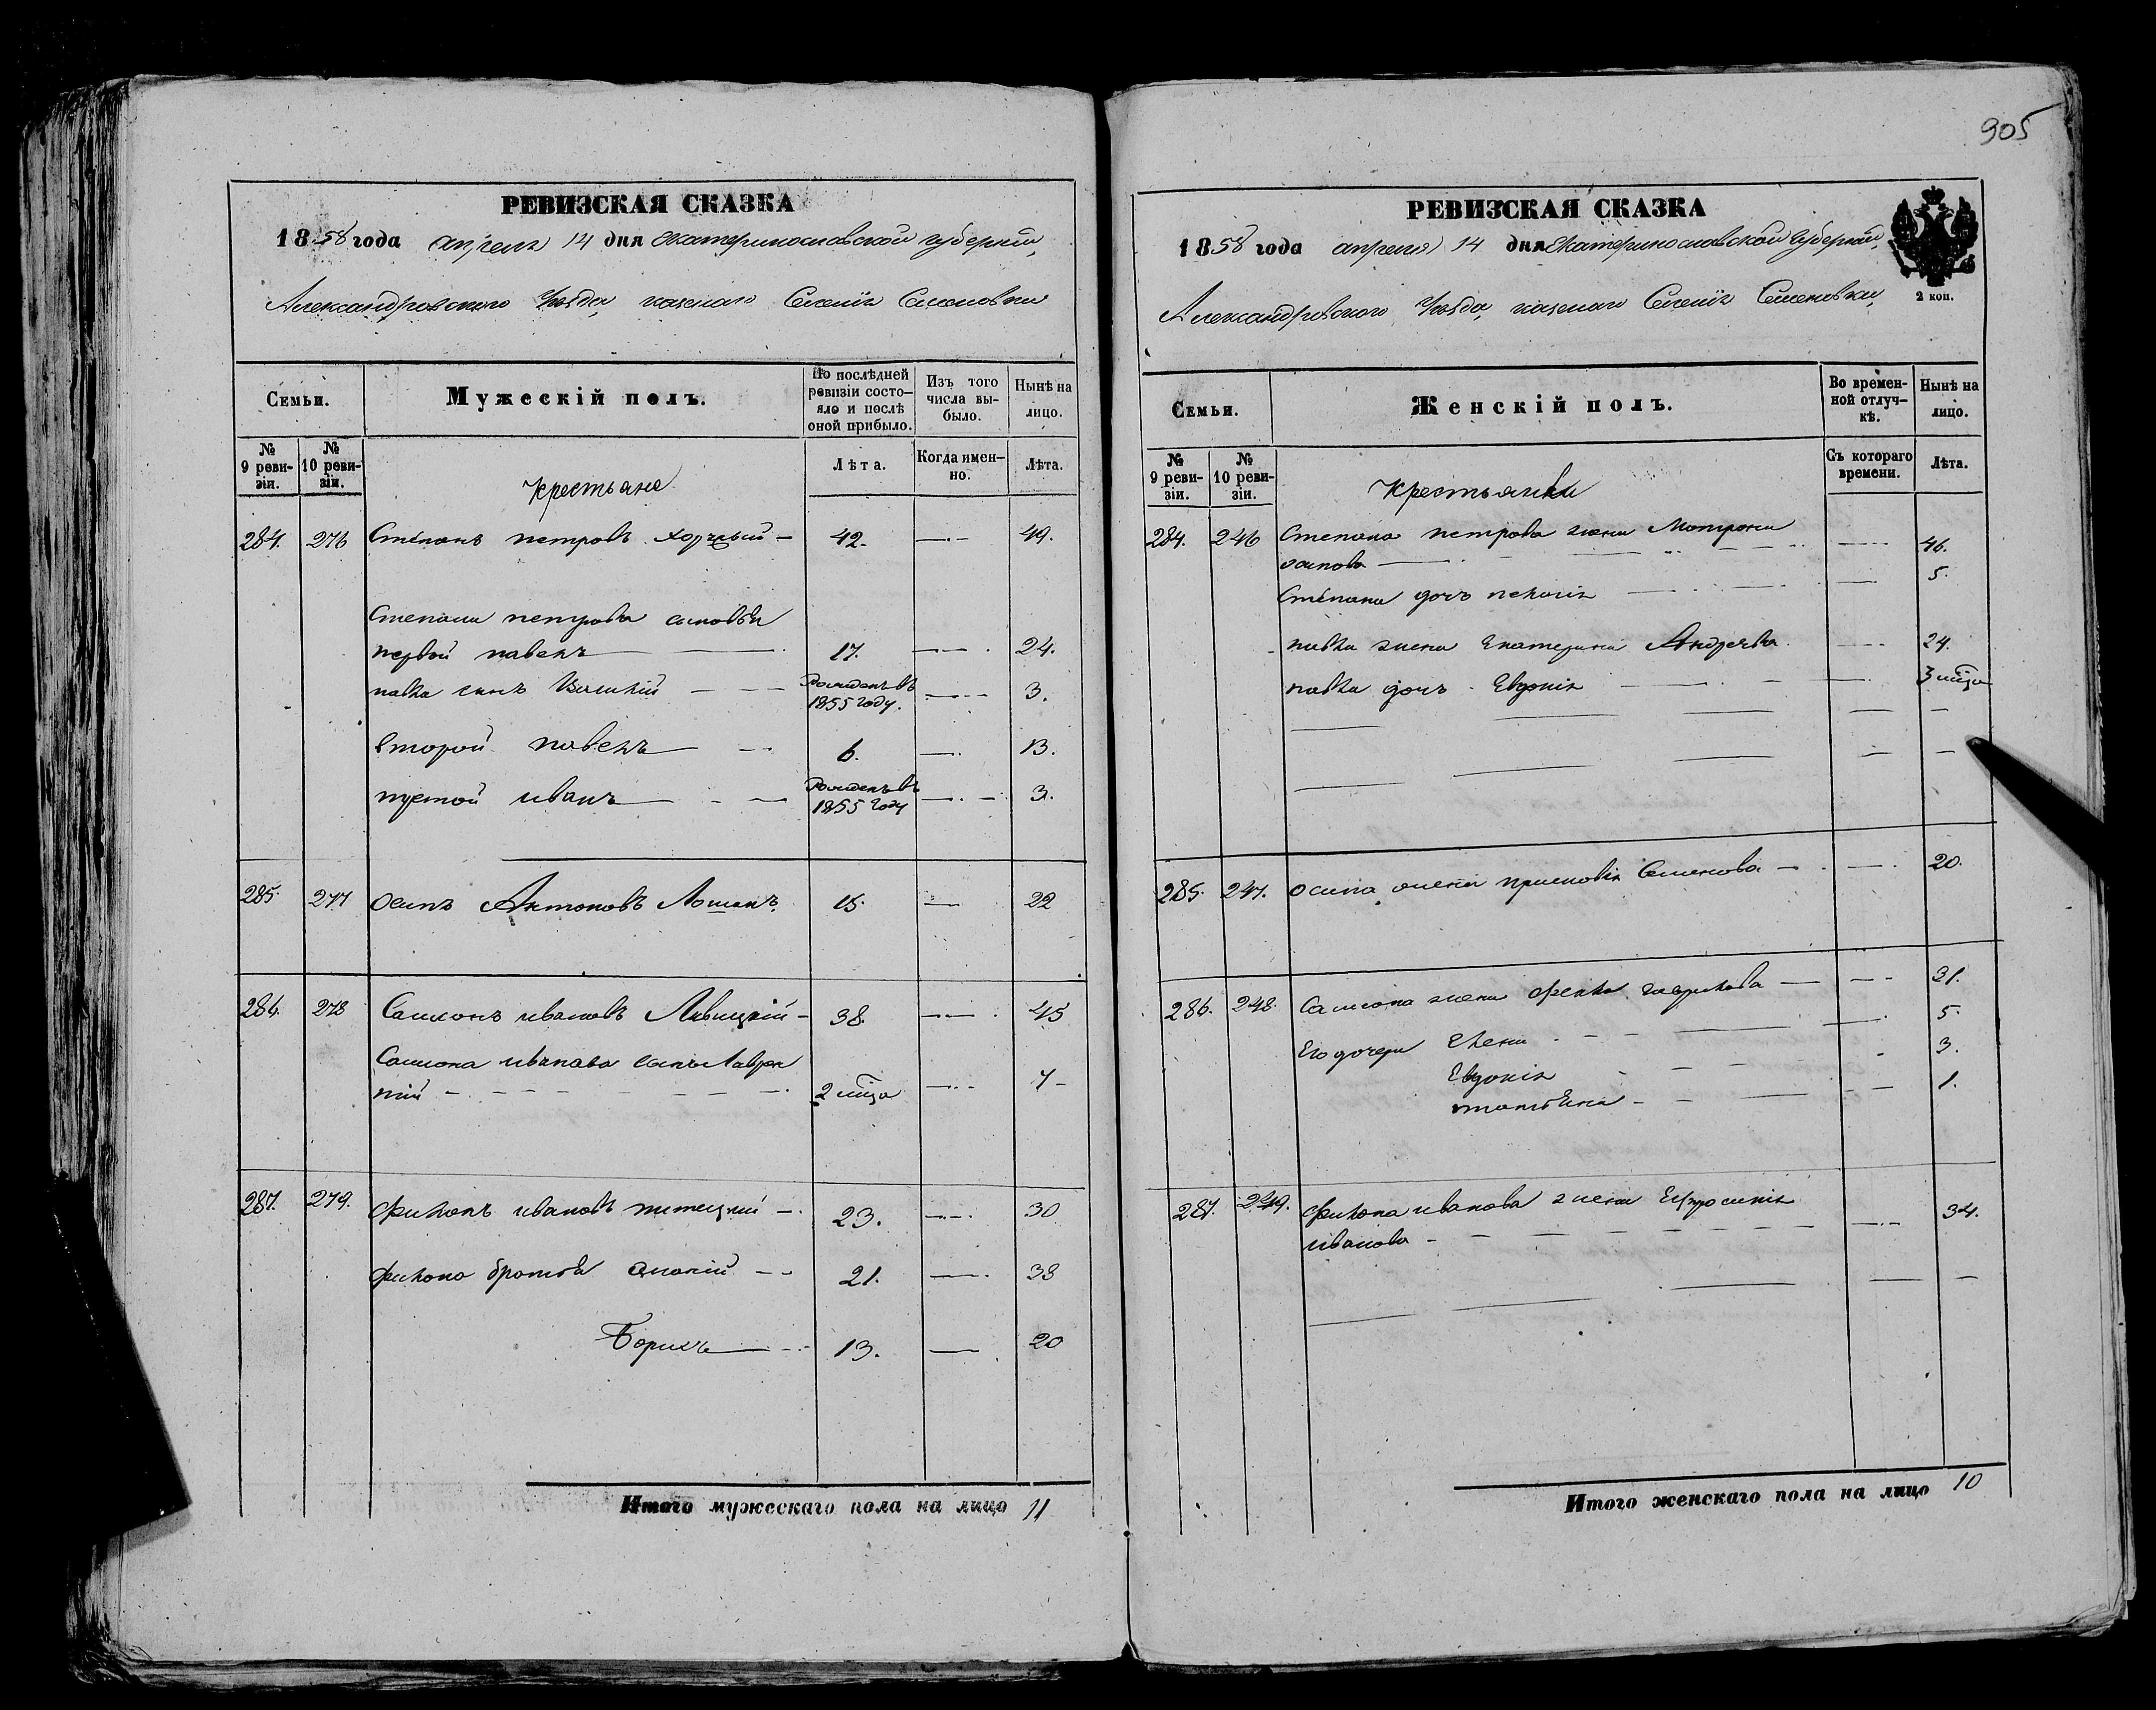 905
РЕВИЗСКАЯ СКАЗКА
1858 года апреля 14 дня Екатеринославской губерніи,
Александровского Уезда, казенаго Селенія Семеновки
Семьи.
Мужескій полъ.
По послѣдней ревизіи состояло и послѣ оной прибыло.
Изъ того числа выбыло.
Нынѣ на лицо.
№ 9 ревизіи.
№ 10 ревизіи.
Крестьяне
Лѣта.
Когда именно.
Лѣта.
284. 276 Степанъ петровъ 42. 49.
Степана петрова сыновья
первой павелъ 17. 24.
павла сынъ Рожденъ въ 1855 году. 3.
второй павелъ 6. 13.
третой иванъ Рожденъ въ 1855 году 3.
285. 277 Осипъ Антоновъ 15. 22
286. 278 Самсонъ ивановъ 38. 45
Самсона иванова сынъ Лаврен
тій 2 мца 7
287. 279. филипъ ивановъ 23. 30
братья 21. 38
Борисъ 13. 20
Итого мужескаго пола на лицо 11
РЕВИЗСКАЯ СКАЗКА
1858 года апреля 14 дня Екатеринославской Губерніи,
Александровского Уезда, казенаго Селенія Семеновки,
2 коп.
Семьи.
Женскій полъ.
Во временной отлучкѣ.
Нынѣ на лицо.
№ 9 ревизіи.
№ 10 ревизіи.
Крестьянки
Съ котораго времени.
Лѣта.
284. 246 Степана петрова жена Мотрона
осипова 46.
Степана дочъ 5.
павла жена Екатерина Андреева 24.
павла дочъ Евдокія 3 мца
285. 247. Осипа жена Семенова 20.
286. 248. Самсона жена гаврилова 31.
Его дочери Елена 5.
Евдокія 3.
татьяна 1.
287. 249. иванова жена Ефросинія
иванова 34.
Итого женскаго пола на лицо 10